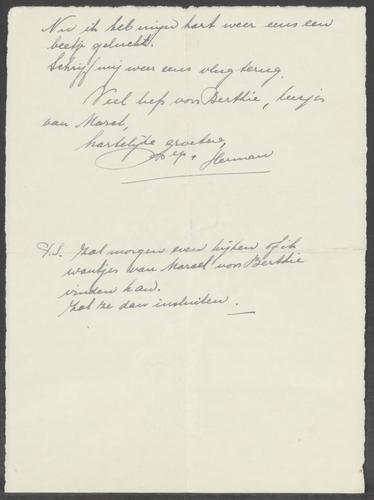 Nu ik heb mijn hart weer eens een
beetje gelucht.
Schrijf mij weer eens vlug terug.
Veel liefs voor Berthie, kusjes
van Marcel,
hartelijke groeten,
Jep + Herman
P.S. Zal morgen even kijken of ik
wantjes van Marcel voor Berthie
vinden kan.
Zal ze dan insluiten.